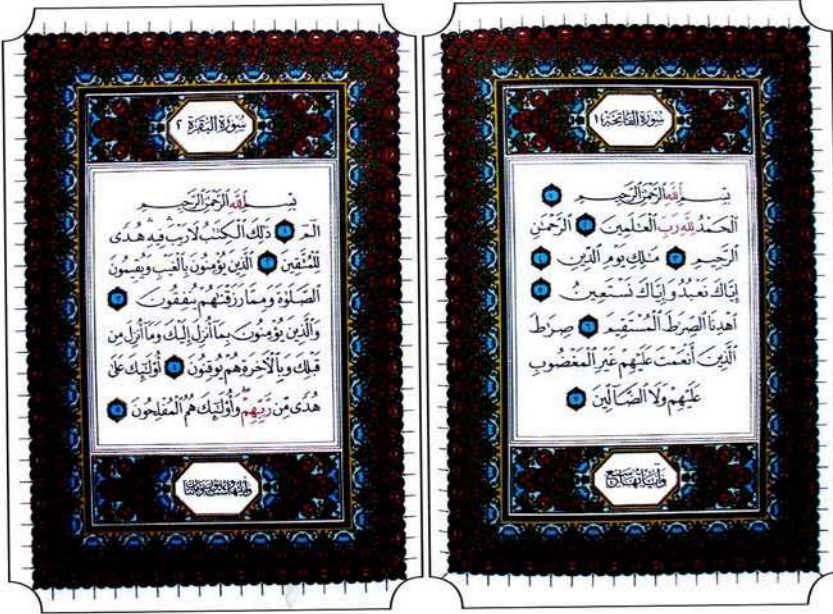 سُورَةُ الفَاتِحَةِ ١
بِسْمِ ٱللَّهِ ٱلرَّحْمَٰنِ ٱلرَّحِيمِ ١
ٱلْحَمْدُ لِلَّهِ رَبِّ ٱلْعَٰلَمِينَ ٢ ٱلرَّحْمَٰنِ
ٱلرَّحِيمِ ٣ مَٰلِكِ يَوْمِ ٱلدِّينِ ٤
إِيَّاكَ نَعْبُدُ وَإِيَّاكَ نَسْتَعِينُ ٥
ٱهْدِنَا ٱلصِّرَٰطَ ٱلْمُسْتَقِيمَ ٦ صِرَٰطَ
ٱلَّذِينَ أَنْعَمْتَ عَلَيْهِمْ غَيْرِ ٱلْمَغْضُوبِ
عَلَيْهِمْ وَلَا ٱلضَّآلِّينَ ٧
وَآيَاتُهَا سَبْعٌ
سُورَةُ البَقَرَةِ ٢
بِسْمِ ٱللَّهِ ٱلرَّحْمَٰنِ ٱلرَّحِيمِ
الٓمٓ ١ ذَٰلِكَ ٱلْكِتَٰبُ لَا رَيْبَ ۛ فِيهِ ۛ هُدًى
لِّلْمُتَّقِينَ ٢ ٱلَّذِينَ يُؤْمِنُونَ بِٱلْغَيْبِ وَيُقِيمُونَ
ٱلصَّلَوٰةَ وَمِمَّا رَزَقْنَٰهُمْ يُنفِقُونَ ٣
وَٱلَّذِينَ يُؤْمِنُونَ بِمَآ أُنزِلَ إِلَيْكَ وَمَآ أُنزِلَ مِن
قَبْلِكَ وَبِٱلْءَاخِرَةِ هُمْ يُوقِنُونَ ٤ أُو۟لَٰٓئِكَ عَلَىٰ
هُدًى مِّن رَّبِّهِمْ ۖ وَأُو۟لَٰٓئِكَ هُمُ ٱلْمُفْلِحُونَ ٥